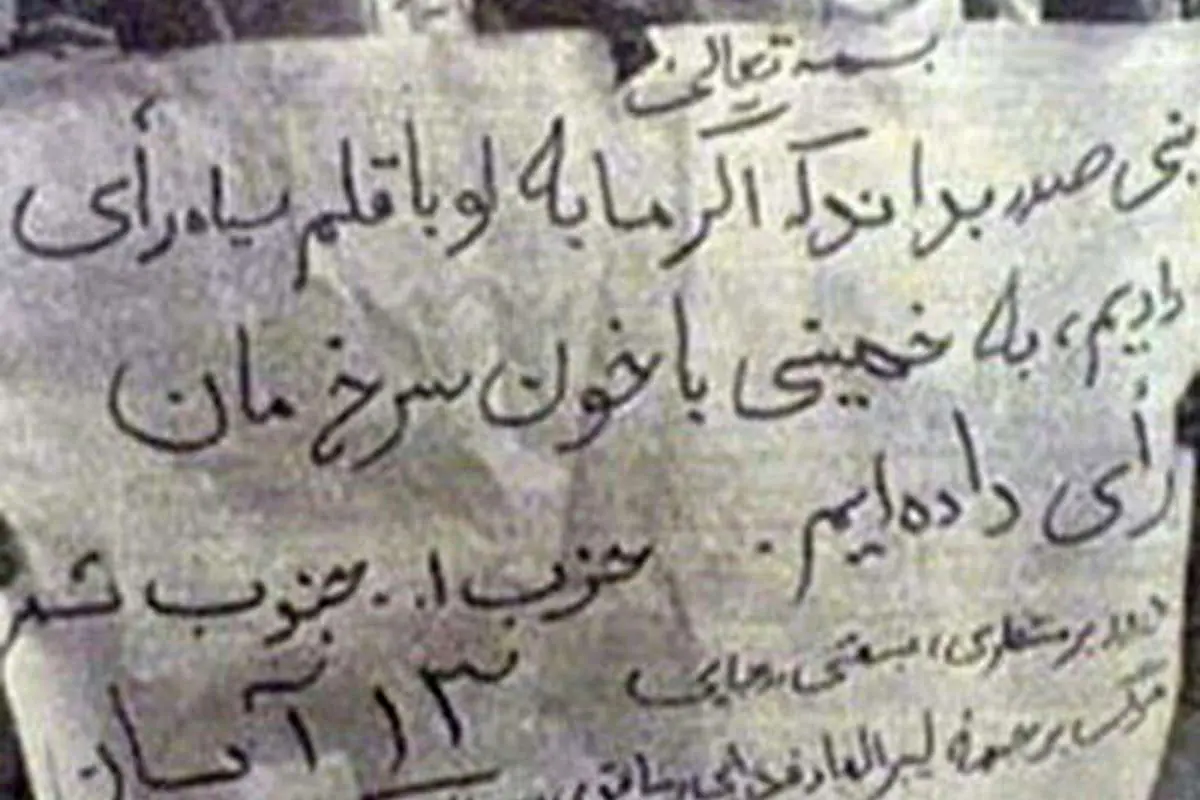 بسمه تعالی
بنی صدر بداند که اگر ما به او با قلم سیاه رأی
دادیم، به خمینی با خون سرخ مان
رأی داده ایم.
حزب ا.. جنوب شهر
درود بر منتظری، بهشتی، رجایی
۱۳ آبان
مرگ بر جبهه لیبرالها،